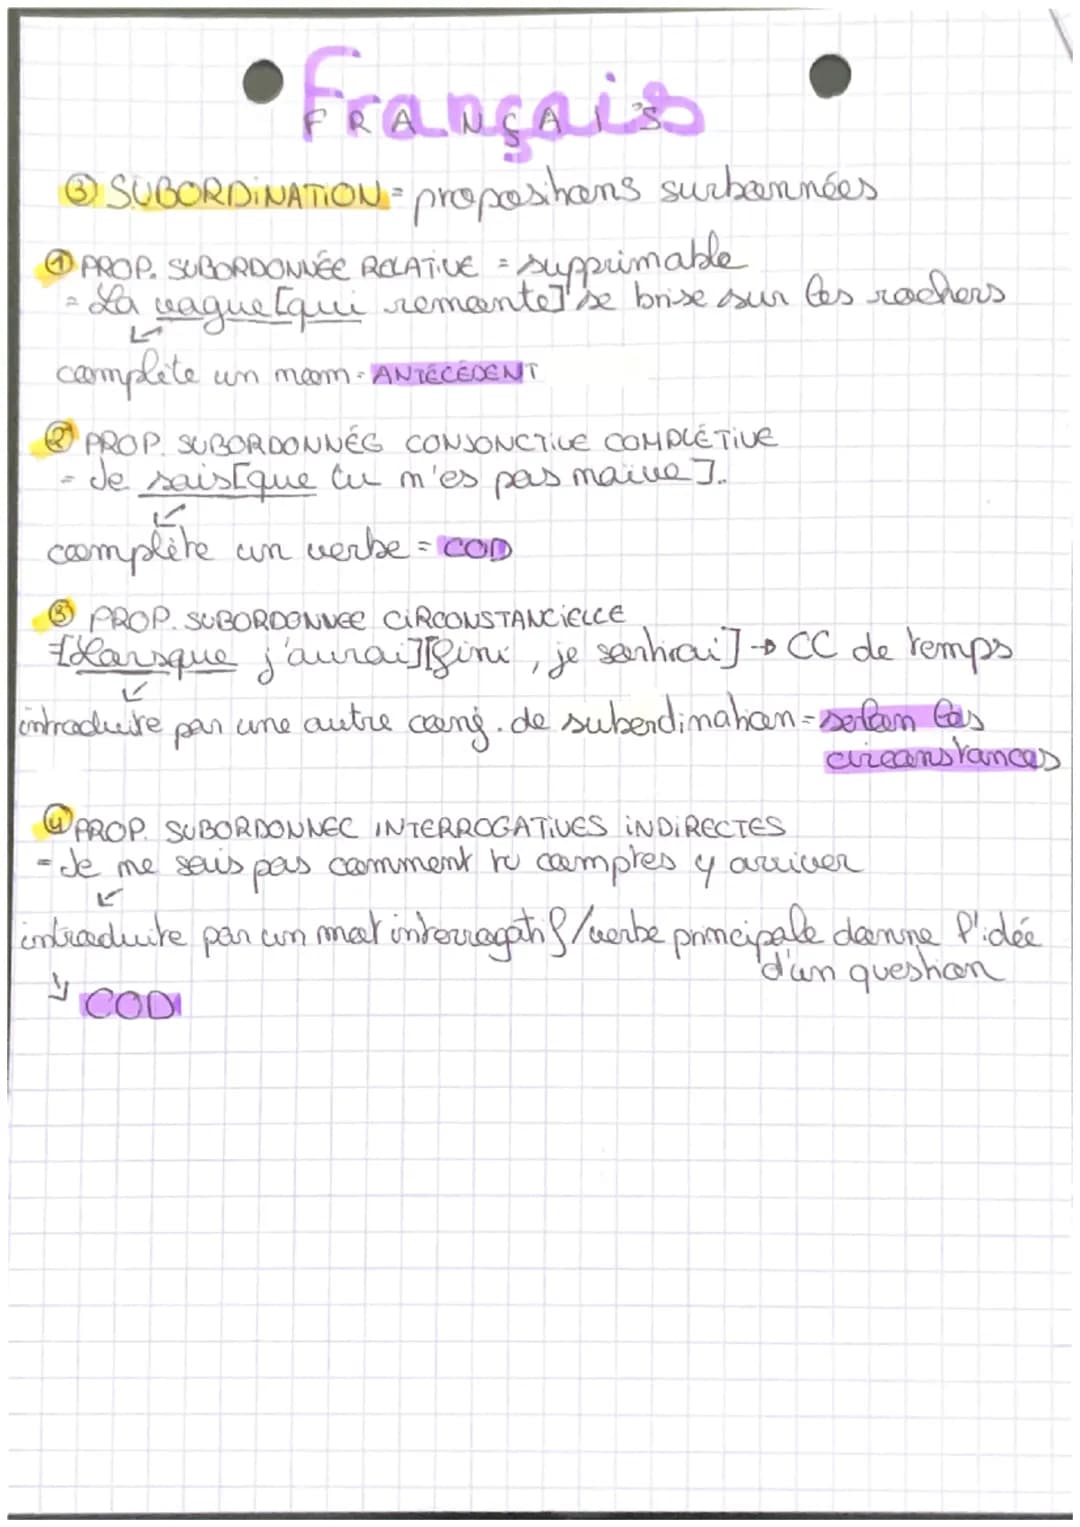 Français
FRANÇAIS
③ SUBORDINATION = propositions surbonnées
① PROP. SUBORDONNÉE RELATIVE = supprimable
= La vague [qui remonte] se brise sur les rochers
complète un nom = ANTÉCÉDENT
② PROP. SUBORDONNÉE CONJONCTIVE COMPLÉTIVE
= Je sais [que tu n'es pas naïve].
complète un verbe = COD
③ PROP. SUBORDONNEE CIRCONSTANCIELLE
[Lorsque j'aurai][fini, je sortirai] → CC de temps
introduite par une autre conj. de subordination = selon les
circonstances
④ PROP. SUBORDONNEE INTERROGATIVES INDIRECTES
= Je ne sais pas comment tu comptes y arriver
introduite par un mot interrogatif/verbe principale donne l'idée
d'un question
↳ COD